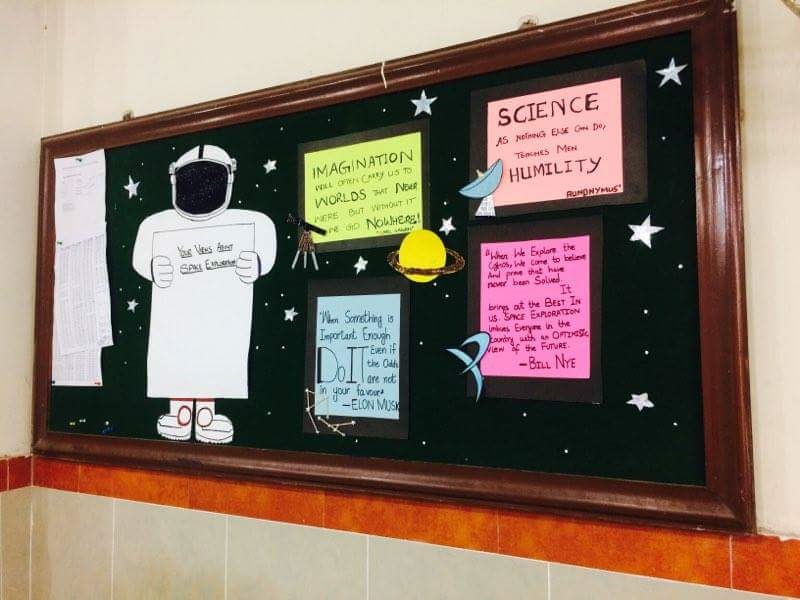 YOUR VIEWS ABOUT
SPACE EXPLORATION
IMAGINATION
WILL OFTEN CARRY US TO
WORLDS THAT NEVER
WERE BUT WITHOUT IT
WE GO NOWHERE!
SCIENCE
AS NOTHING ELSE CAN DO,
TEACHES MEN
HUMILITY
"When Something is
Important Enough
DO IT Even if
the Odds
are not
in your favour"
—ELON MUSK
"When We Explore the
Cosmos, We come to believe
And prove that have
never been Solved.
It
brings out the BEST IN
US. SPACE EXPLORATION
imbues Everyone in the
Country with an OPTIMISTIC
VIEW of the FUTURE.
—BILL NYE